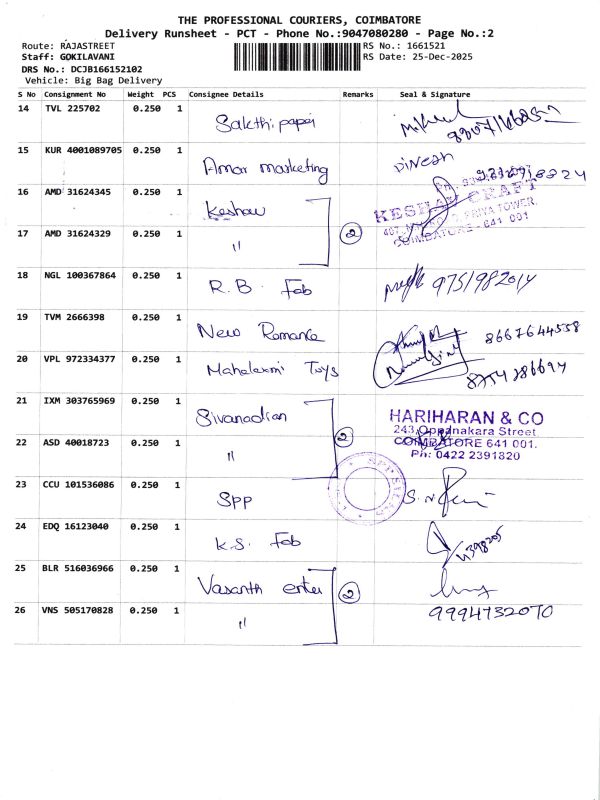 THE PROFESSIONAL COURIERS, COIMBATORE
Delivery Runsheet - PCT - Phone No.:9047080280 - Page No.:2
Route: RAJASTREET RS No.: 1661521
Staff: GOKILAVANI RS Date: 25-Dec-2025
DRS No.: DCJB166152102
Vehicle: Big Bag Delivery
S No Consignment No Weight PCS Consignee Details Remarks Seal & Signature
14 TVL 225702 0.250 1 Sakthi paper
15 KUR 4001089705 0.250 1 Amar marketing Dinesh
16 AMD 31624345 0.250 1 Keshav
KESHAV CRAFT
PRIYA TOWER,
COIMBATORE - 641 001
17 AMD 31624329 0.250 1 " 2
18 NGL 100367864 0.250 1 R.B. Fab 9751982014
19 TVM 2666398 0.250 1 New Romance 8667644558
20 VPL 972334377 0.250 1 Mahalaxmi Toys
21 IXM 303765969 0.250 1 Sivanadian
HARIHARAN & CO
243, Oppanakara Street,
COIMBATORE 641 001.
Ph: 0422 2391820
22 ASD 40018723 0.250 1 " 2
23 CCU 101536086 0.250 1 SPP
24 EDQ 16123040 0.250 1 K.S. Fab
25 BLR 516036966 0.250 1 Vasanth enter 2
26 VNS 505170828 0.250 1 " 9994732070